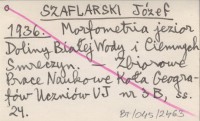 SZAFLARSKI Józef
1936. Morfometria jezior
Doliny Białej Wody i Ciemnych
Smreczyn. — Zbiorowe
Prace Naukowe Koła Geogra-
fów Uczniów UJ nr 3B, ss.
24.
BT/045/2463